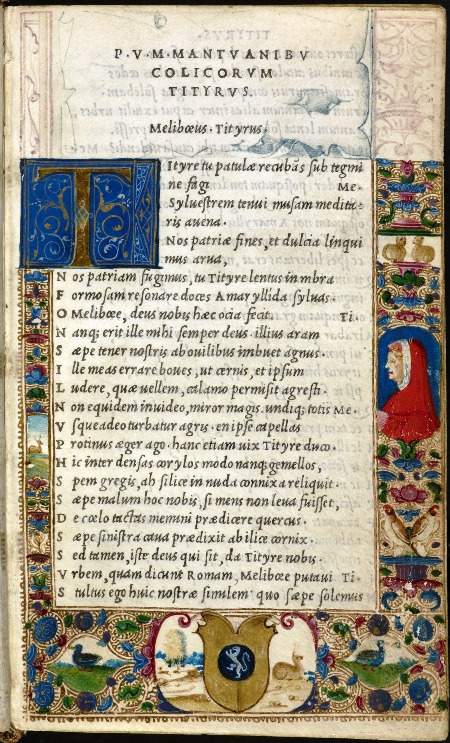 P. V. M. MANTVANI BV
COLICORVM
TITYRVS.
Melibœus. Tityrus.
TItyre tu patulæ recubãs sub tegmi
ne fagi Me.
Syluestrem tenui musam medita-
ris auena.
Nos patriæ fines, et dulcia linqui
mus arua,
N os patriam fugimus, tu Tityre lentus in mbra
F ormosam resonare doces Amaryllida syluas.
O Melibœe, deus nobis hæc ocia fecit. Ti.
N anq; erit ille mihi semper deus. illius aram
S æpe tener nostris ab ouilibus imbuet agnus
I lle meas errare boues, ut cernis, et ipsum
L udere, quæ uellem, calamo permisit agresti.
N on equidem inuideo, miror magis. undiq; totis Me.
V sque adeo turbatur agris. en ipse capellas
P rotinus æger ago. hanc etiam uix Tityre duco.
H ic inter densas corylos modo nanq; gemellos,
S pem gregis, ah silice in nuda connixa reliquit.
S æpe malum hoc nobis, si mens non leua fuisset,
D e cœlo tactas memini prædicere quercus.
S æpe sinistra caua prædixit ab ilice cornix.
S ed tamen, iste deus qui sit, da Tityre nobis.
V rbem, quam dicunt Romam, Melibœe putaui Ti.
S tultus ego huic nostræ similem, quo sæpe solemus